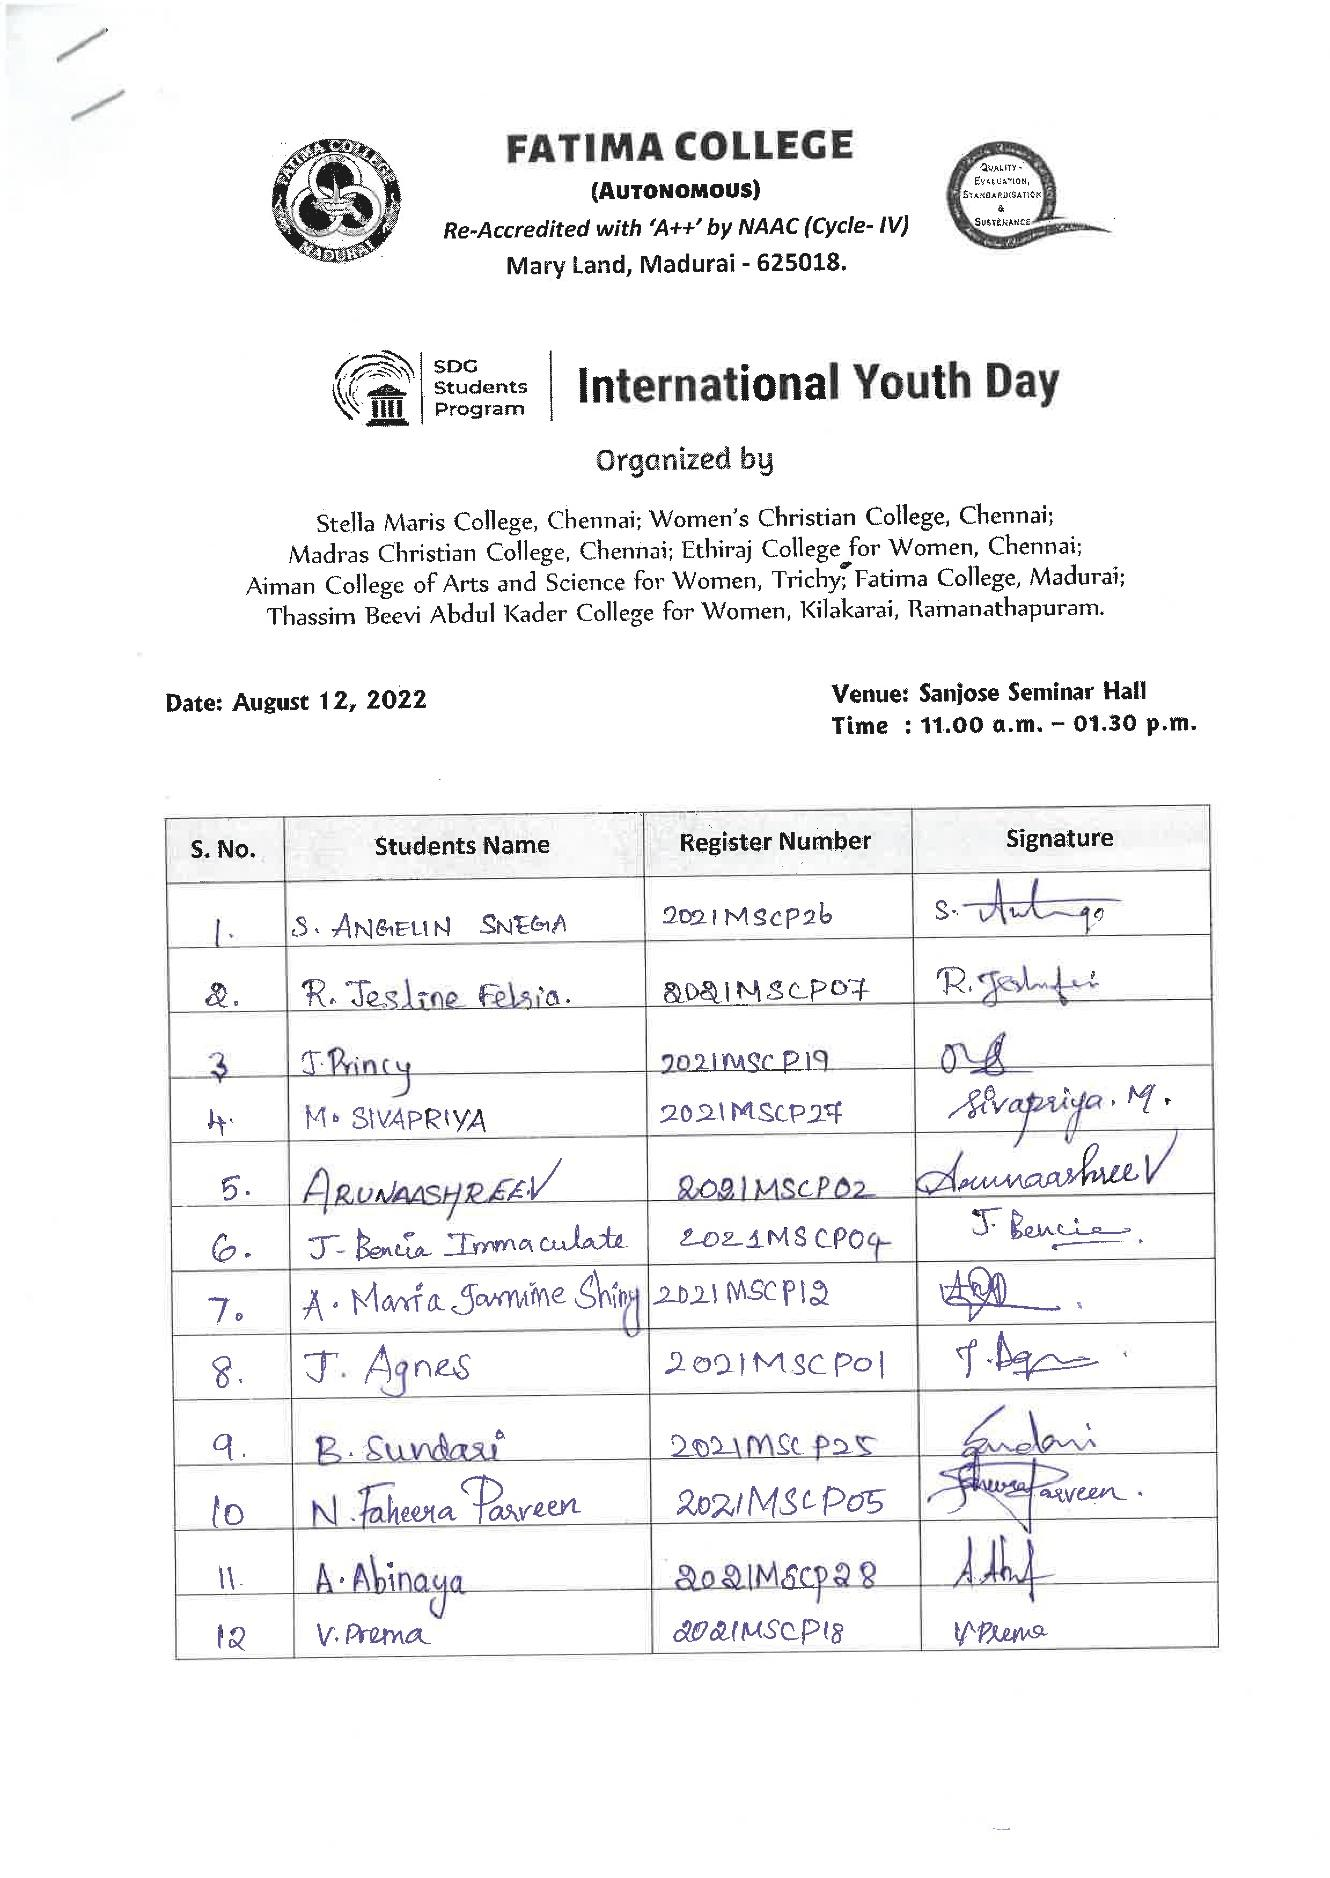 FATIMA COLLEGE
(AUTONOMOUS)
Re-Accredited with ‘A++’ by NAAC (Cycle- IV)
Mary Land, Madurai - 625018.
FATIMA COLLEGE
MADURAI
QUALITY -
EVALUATION,
STANDARDISATION
&
SUSTENANCE
SDG
Students
Program
International Youth Day
Organized by
Stella Maris College, Chennai; Women's Christian College, Chennai;
Madras Christian College, Chennai; Ethiraj College for Women, Chennai;
Aiman College of Arts and Science for Women, Trichy; Fatima College, Madurai;
Thassim Beevi Abdul Kader College for Women, Kilakarai, Ramanathapuram.
Date: August 12, 2022
Venue: Sanjose Seminar Hall
Time : 11.00 a.m. – 01.30 p.m.
S. No. Students Name Register Number Signature
1. S. ANGELIN SNEGA 2021MSCP26 S.
2. R. Jesline Felsia. 2021MSCP07 R.
3 J. Princy 2021MSCP19
4. M. SIVAPRIYA 2021MSCP27 Sivapriya. M.
5. ARUNAASHREE V 2021MSCP02 Arunaashree V
6. J. Bencia Immaculate 2021MSCP04 J. Bencia.
7. A. Maria Jasmine Shiny 2021MSCP12
8. J. Agnes 2021MSCP01
9. B. Sundari 2021MSCP25
10 N. Faheera Parveen 2021MSCP05 Faheera Parveen.
11. A. Abinaya 2021MSCP28
12 V. Prema 2021MSCP18 V Prema